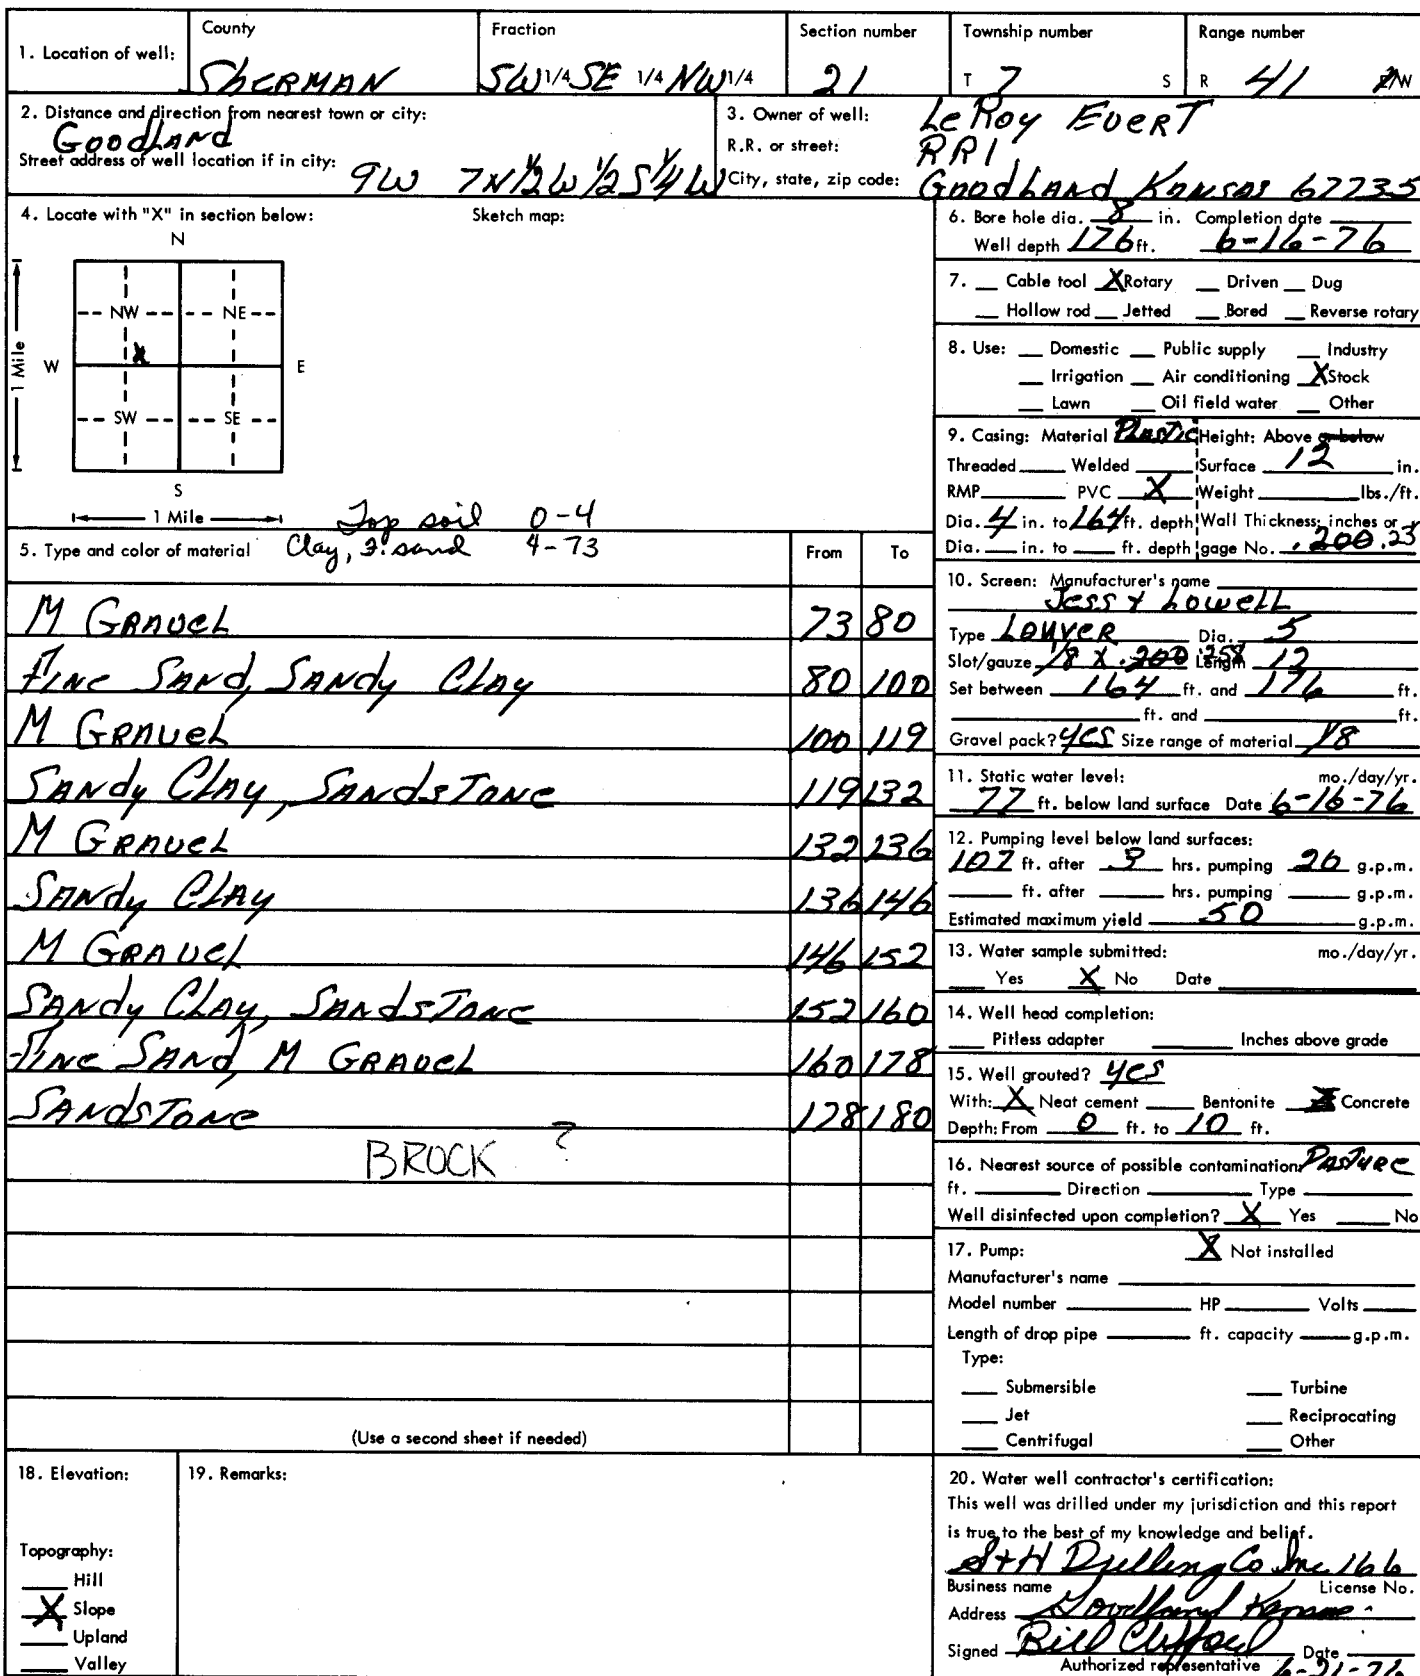 County Fraction Section number Township number Range number
1. Location of well: SHERMAN SW 1/4 SE 1/4 NW 1/4 21 T 7 S R 41 E/W
2. Distance and direction from nearest town or city:
Goodland
Street address of well location if in city: 9W 7N 1/2 W 1/2 S 1/4 W
3. Owner of well: LeRoy Evert
R.R. or street: RR1
City, state, zip code: Goodland Kansas 67735
4. Locate with "X" in section below: Sketch map:
N
NW NE
W X E
1 Mile
SW SE
S
1 Mile
Top soil 0-4
Clay, F. sand 4-73
5. Type and color of material From To
M Gravel 73 80
Fine Sand, Sandy Clay 80 100
M Gravel 100 119
Sandy Clay, Sandstone 119 132
M Gravel 132 136
Sandy Clay 136 146
M Gravel 146 152
Sandy Clay, Sandstone 152 160
Fine Sand, M Gravel 160 178
Sandstone 178 180
BROCK ?
(Use a second sheet if needed)
6. Bore hole dia. 8 in. Completion date
Well depth 176 ft. 6-16-76
7. Cable tool X Rotary Driven Dug
Hollow rod Jetted Bored Reverse rotary
8. Use: Domestic Public supply Industry
Irrigation Air conditioning X Stock
Lawn Oil field water Other
9. Casing: Material Plastic Height: Above or below
Threaded Welded Surface 12 in.
RMP PVC X Weight lbs./ft.
Dia. 4 in. to 164 ft. depth Wall Thickness: inches or
Dia. in. to ft. depth gage No. .200 .23
10. Screen: Manufacturer's name
Jess & Lowell
Type Louver Dia. 5
Slot/gauze 1/8 X .200 .258 Length 12
Set between 164 ft. and 176 ft.
ft. and ft.
Gravel pack? Yes Size range of material 1/8
11. Static water level: mo./day/yr.
77 ft. below land surface Date 6-16-76
12. Pumping level below land surfaces:
107 ft. after 3 hrs. pumping 20 g.p.m.
ft. after hrs. pumping g.p.m.
Estimated maximum yield 50 g.p.m.
13. Water sample submitted: mo./day/yr.
Yes X No Date
14. Well head completion:
Pitless adapter Inches above grade
15. Well grouted? Yes
With: X Neat cement Bentonite Concrete
Depth: From 0 ft. to 10 ft.
16. Nearest source of possible contamination: Pasture
ft. Direction Type
Well disinfected upon completion? X Yes No
17. Pump: X Not installed
Manufacturer's name
Model number HP Volts
Length of drop pipe ft. capacity g.p.m.
Type:
Submersible Turbine
Jet Reciprocating
Centrifugal Other
18. Elevation:
Topography:
Hill
X Slope
Upland
Valley
19. Remarks:
20. Water well contractor's certification:
This well was drilled under my jurisdiction and this report
is true to the best of my knowledge and belief.
S+H Drilling Co Inc. 166
Business name License No.
Address Goodland Kansas
Signed Bill Clifford Date
Authorized representative 6-21-76